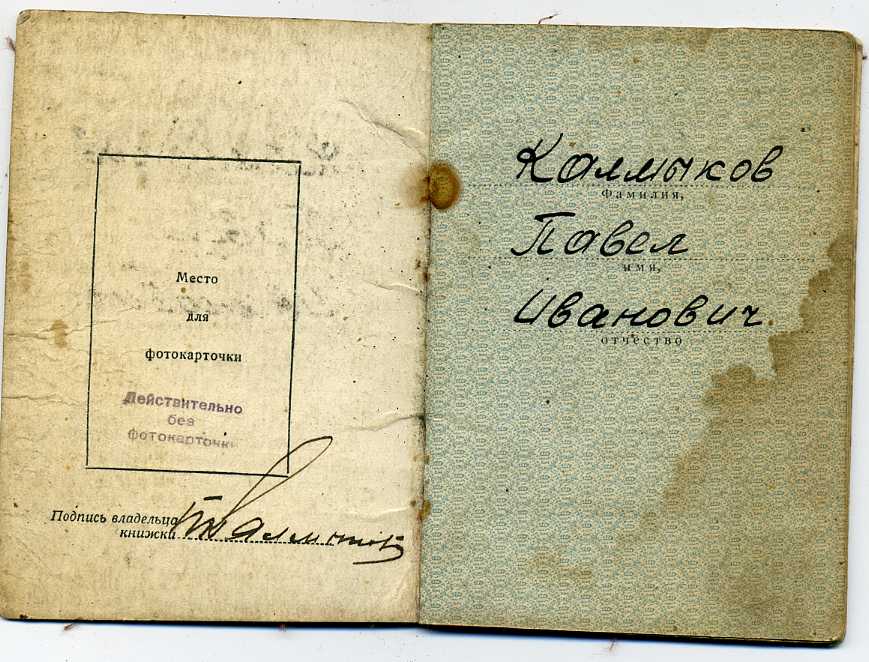 Место
для
фотокарточки
Действительно
без
фотокарточки
Подпись владельца
книжки
Калмыков
фамилия,
Павел
имя,
Иванович
отчество